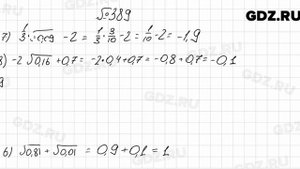 GDZ.RU
№389
7) 1/3 · √0,09 - 2 = 1/3 · 3/10 - 2 = 1/10 - 2 = -1,9
8) -2 √0,16 + 0,7 = -2·0,4+0,7 = -0,8+0,7=-0,1
9
6) √0,81 + √0,01 = 0,9 + 0,1 = 1
GDZ.RU